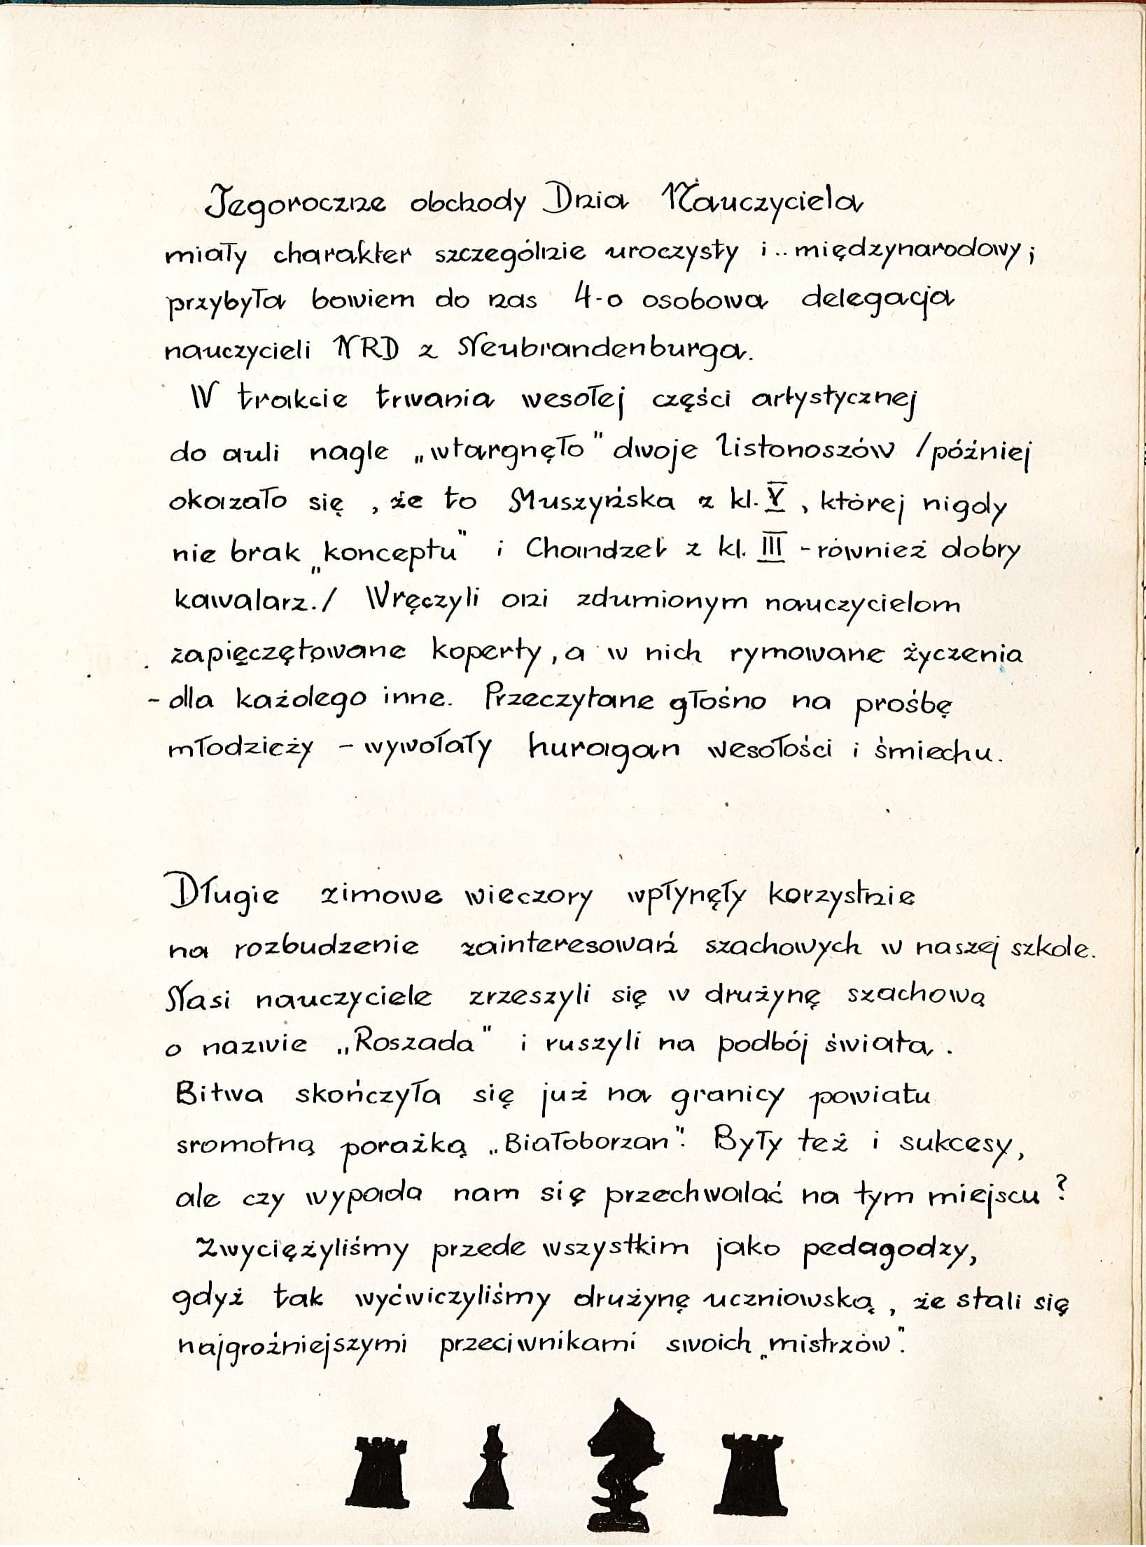 Tegoroczne obchody Dnia Nauczyciela
miały charakter szczególnie uroczysty i .. międzynarodowy;
przybyła bowiem do nas 4-o osobowa delegacja
nauczycieli NRD z Neubrandenburga.
W trakcie trwania wesołej części artystycznej
do auli nagle „wtargnęło" dwoje listonoszów /później
okazało się, że to Muszyńska z kl. V, której nigdy
nie brak „konceptu" i Chandzel z kl. III - również dobry
„kawalarz./ Wręczyli oni zdumionym nauczycielom
zapięczętowane koperty, a w nich rymowane życzenia
- dla każdego inne. Przeczytane głośno na prośbę
młodzieży - wywołały huragan wesołości i śmiechu.
Długie zimowe wieczory wpłynęły korzystnie
na rozbudzenie zainteresowań szachowych w naszej szkole.
Nasi nauczyciele zrzeszyli się w drużynę szachową
o nazwie „Roszada" i ruszyli na podbój świata.
Bitwa skończyła się już na granicy powiatu
sromotną porażką „Białoborzan". Były też i sukcesy,
ale czy wypada nam się przechwalać na tym miejscu?
Zwyciężyliśmy przede wszystkim jako pedagodzy,
gdyż tak wyćwiczyliśmy drużynę uczniowską, że stali się
najgroźniejszymi przeciwnikami swoich „mistrzów".